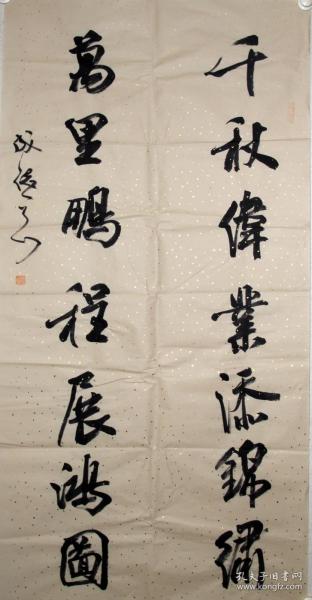 千秋偉業添錦繡
萬里鵬程展鴻圖
孔夫子旧书网
www.kongfz.com